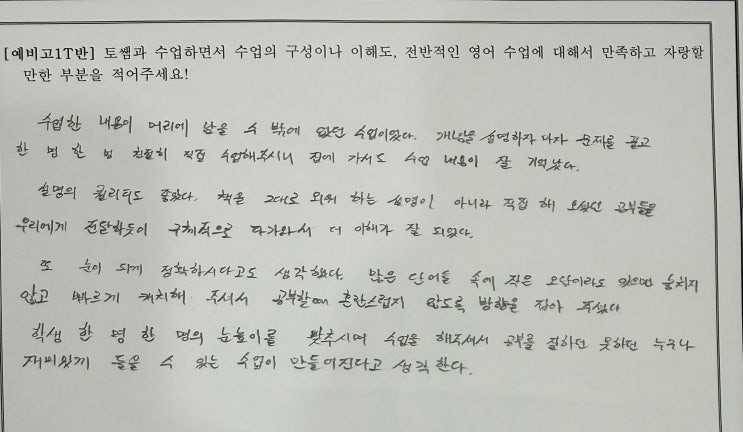 [예비고1T반] 토쌤과 수업하면서 수업의 구성이나 이해도, 전반적인 영어 수업에 대해서 만족하고 자랑할
만한 부분을 적어주세요!
수업한 내용이 머리에 남을 수 밖에 없던 수업이었다. 개념을 설명하자 마자 문제를 풀고
한 명 한 명 친절히 직접 수업해주시니 집에 가서도 수업 내용이 잘 기억났다.
설명의 퀄리티도 좋았다. 책을 그대로 외워 하는 설명이 아니라 직접 해 오셨던 공부들을
우리에게 전달하듯이 구체적으로 다가와서 더 이해가 잘 되었다.
또 눈이 되게 정확하시다고도 생각했다. 많은 단어들 속에 작은 오답이라도 있으면 놓치지
않고 빠르게 캐치해 주셔서 공부할때 혼란스럽지 않도록 방향을 잡아 주셨다
학생 한 명 한 명의 눈높이를 맞추시며 수업을 해주셔서 공부를 잘하던 못하던 누구나
재미있게 들을 수 있는 수업이 만들어진다고 생각한다.